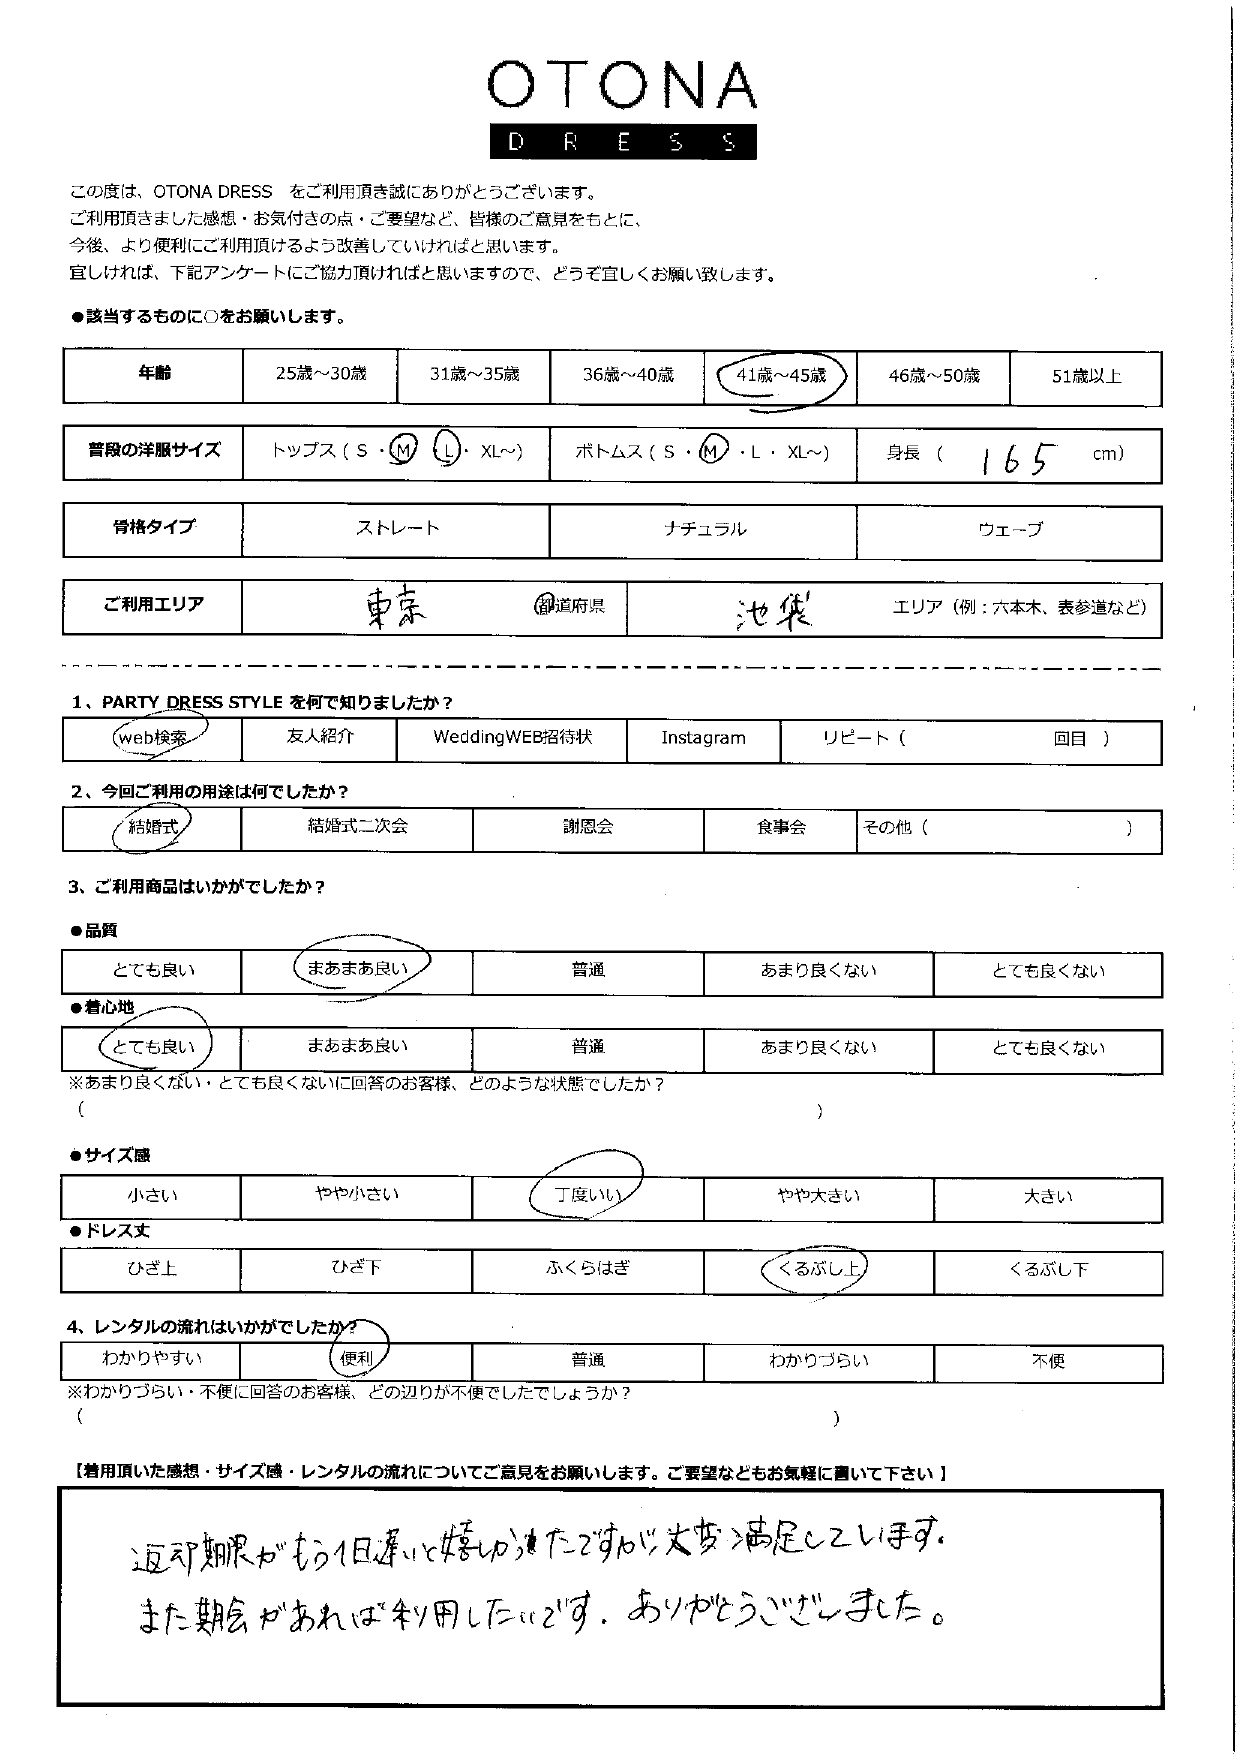 OTONA
DRESS
この度は、OTONA DRESS をご利用頂き誠にありがとうございます。
ご利用頂きました感想・お気付きの点・ご要望など、皆様のご意見をもとに、
今後、より便利にご利用頂けるよう改善していければと思います。
宜しければ、下記アンケートにご協力頂ければと思いますので、どうぞ宜しくお願い致します。
●該当するものに○をお願いします。
年齢 25歳～30歳 31歳～35歳 36歳～40歳 41歳～45歳 46歳～50歳 51歳以上
普段の洋服サイズ トップス（ S ・ M L ・ XL～） ボトムス（ S ・ M ・ L ・ XL～） 身長（ 165 cm）
骨格タイプ ストレート ナチュラル ウェーブ
ご利用エリア 東京 都道府県 池袋 エリア（例：六本木、表参道など）
1、PARTY DRESS STYLE を何で知りましたか？
web検索 友人紹介 WeddingWEB招待状 Instagram リピート（ 回目 ）
2、今回ご利用の用途は何でしたか？
結婚式 結婚式二次会 謝恩会 食事会 その他（ ）
3、ご利用商品はいかがでしたか？
●品質
とても良い まあまあ良い 普通 あまり良くない とても良くない
●着心地
とても良い まあまあ良い 普通 あまり良くない とても良くない
※あまり良くない・とても良くないに回答のお客様、どのような状態でしたか？
（ ）
●サイズ感
小さい やや小さい 丁度いい やや大きい 大きい
●ドレス丈
ひざ上 ひざ下 ふくらはぎ くるぶし上 くるぶし下
4、レンタルの流れはいかがでしたか？
わかりやすい 便利 普通 わかりづらい 不便
※わかりづらい・不便に回答のお客様、どの辺りが不便でしたでしょうか？
（ ）
【着用頂いた感想・サイズ感・レンタルの流れについてご意見をお願いします。ご要望などもお気軽に書いて下さい 】
返却期限がもう1日遅いと嬉しかったですが、大変満足しています。
また期会があれば利用したいです。ありがとうございました。